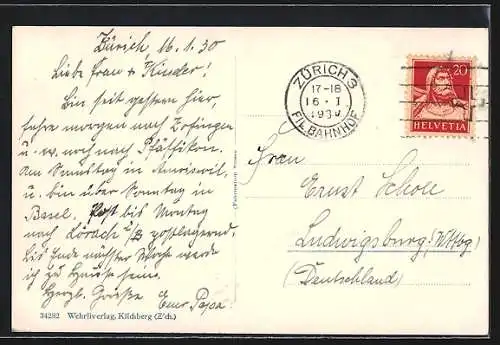 Zürich, 16.1.30
Liebe Frau + Kinder!
Bin seit gestern hier,
fahre morgen nach Zofingen
u. w. noch nach Pfäffikon.
Am Samstag in Amriswil,
u. bin über Sonntag in
Basel. Post bis Montag
nach Lörach a/B postlagernd.
Bis Ende nächster Woche werde
ich zu Hause sein.
Herzl. Grüsse Euer Papa.
34282 Wehrliverlag, Kilchberg (Z'ch.)
ZÜRICH 3
17-18
16 · I
1930
FIL. BAHNHOF
20
HELVETIA
Frau
Ernst Scholl
Ludwigsburg (Wttbg)
(Deutschland)